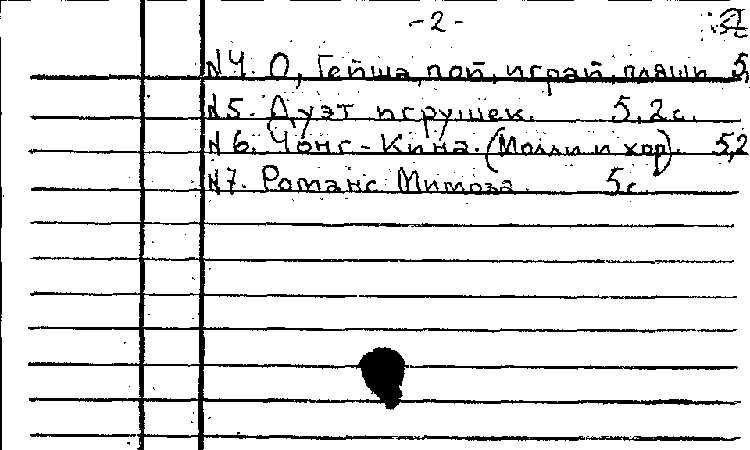 -2-
N4. О, Гейша, пой, играй, пляши 5,
N5. Дуэт игрушек. 5,2с.
N6. Чонг-Кина. (Молли и хор). 5,2
N7. Романс Мимоза. 5с.